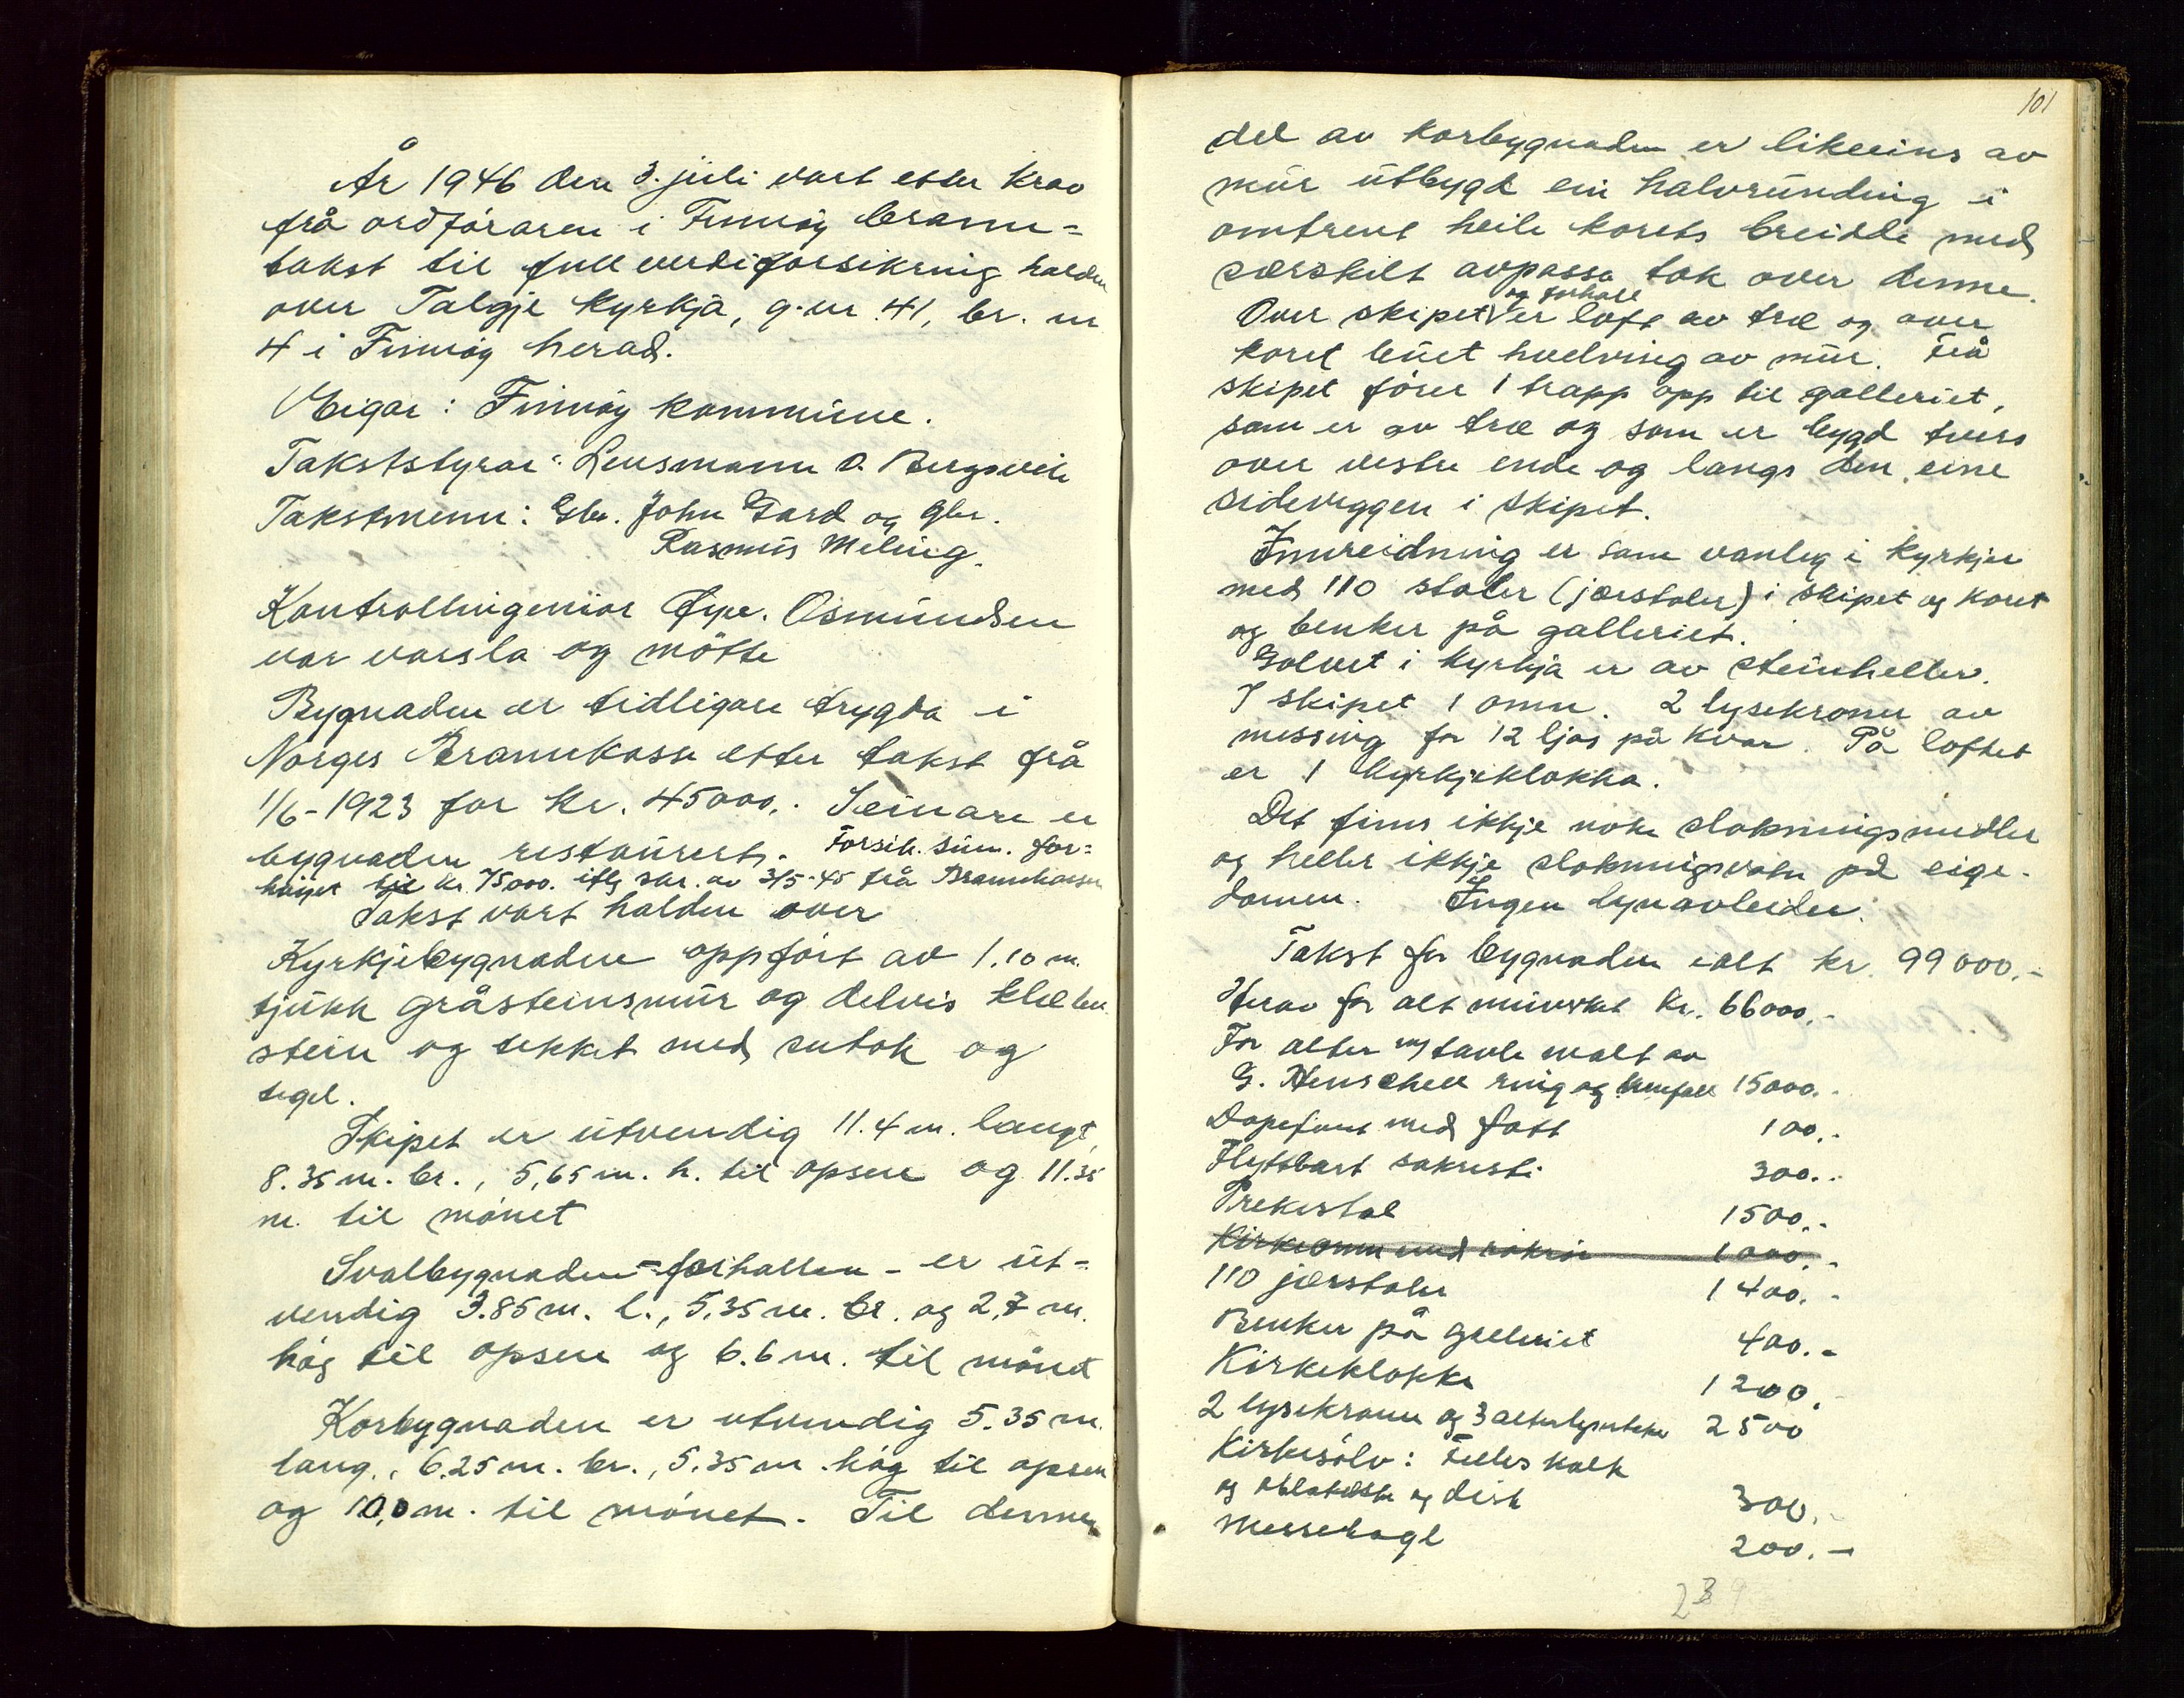 År 1946 den 3. juli vart etter krav
frå ordføraren i Finnøy brann=
takst til full verdiforsikring halden
over Talgje kyrkja, g.nr. 41, br. nr
4 i Finnøy herad.
Eigar: Finnøy kommune.
Takststyrar: Lensmann O. Bergsvik
Takstmenn: Gbr. John Gard og Gbr.
Rasmus Meling.
Kontrollingeniør Osmundsen
var varsla og møtte
Bygnaden er tidligare trygda i
Norges Brannkasse etter takst frå
1/6-1923 for kr. 45000,. Seinare er
bygnaden restaurert. Forsik. sum. for=
høiget til kr. 75000. iflg skr. av 3/5-45 frå Brannkassen
Takst vart halden over
Kyrkjebygnaden oppført av 1.10 m.
tjukk gråsteinsmur og delvis kleber
stein og tekket med sutak og
tegl.
Skipet er utvendig 11.4 m. langt,
8.35 m. br., 5,65 m. h. til opsen og 11.35
m. til mønet
Svalbygnaden - forhallen - er ut-
vendig 3.85 m. l., 5.35 m. br. og 2,7 m.
høg til opsen og 6.6 m. til mønet
Korbygnaden er utvendig 5.35 m.
lang, 6.25 m. br., 5.35 m. høg til opsen
og 10,0 m. til mønet. Til denne
101
del av korbygnaden er likeeins av
mur utbygd ein halvrunding i
omtrent heile korets breidde med
særskilt avpassa tak over denne.
og forhall
Over skipet er loft av tre og over
koret buet hvelving av mur. Frå
skipet fører 1 trapp opp til galleriet,
som er av tre og som er bygd tvers
over vestre ende og langs den eine
sideveggen i skipet.
Innreidning er som vanleg i kyrkjer
med 110 stoler (jærstoler) i skipet og koret
og benker på galleriet.
Golvet i kyrkja er av steinheller.
I skipet 1 omn. 2 lysekroner av
messing for 12 ljos på kvar. På loftet
er 1 kyrkjeklokka.
Det finns ikkje noke slokningsmidler
og heller ikkje slokningsvatn på eige-
domen. Ingen lynavleider.
Takst for bygnaden ialt kr. 99000.-
Herav for alt murverket kr. 66000.-
For alter m/ tavle malt av
G. Henschell ring og knefall 15000.-
Døpefont med fatt 100.-
Flyttbart sakristi 300.-
Prekestol 1500.-
Kirkeomn med rökrör 1000.-
110 jærstoler 1400.-
Benker på galleriet 400.-
Kirkeklokke 1200.-
2 lysekroner og 3 alterlysestaker 2500
Kirkesölv: Felles kalk
og oblateske og disk 300.-
Messehagl 200.-
239